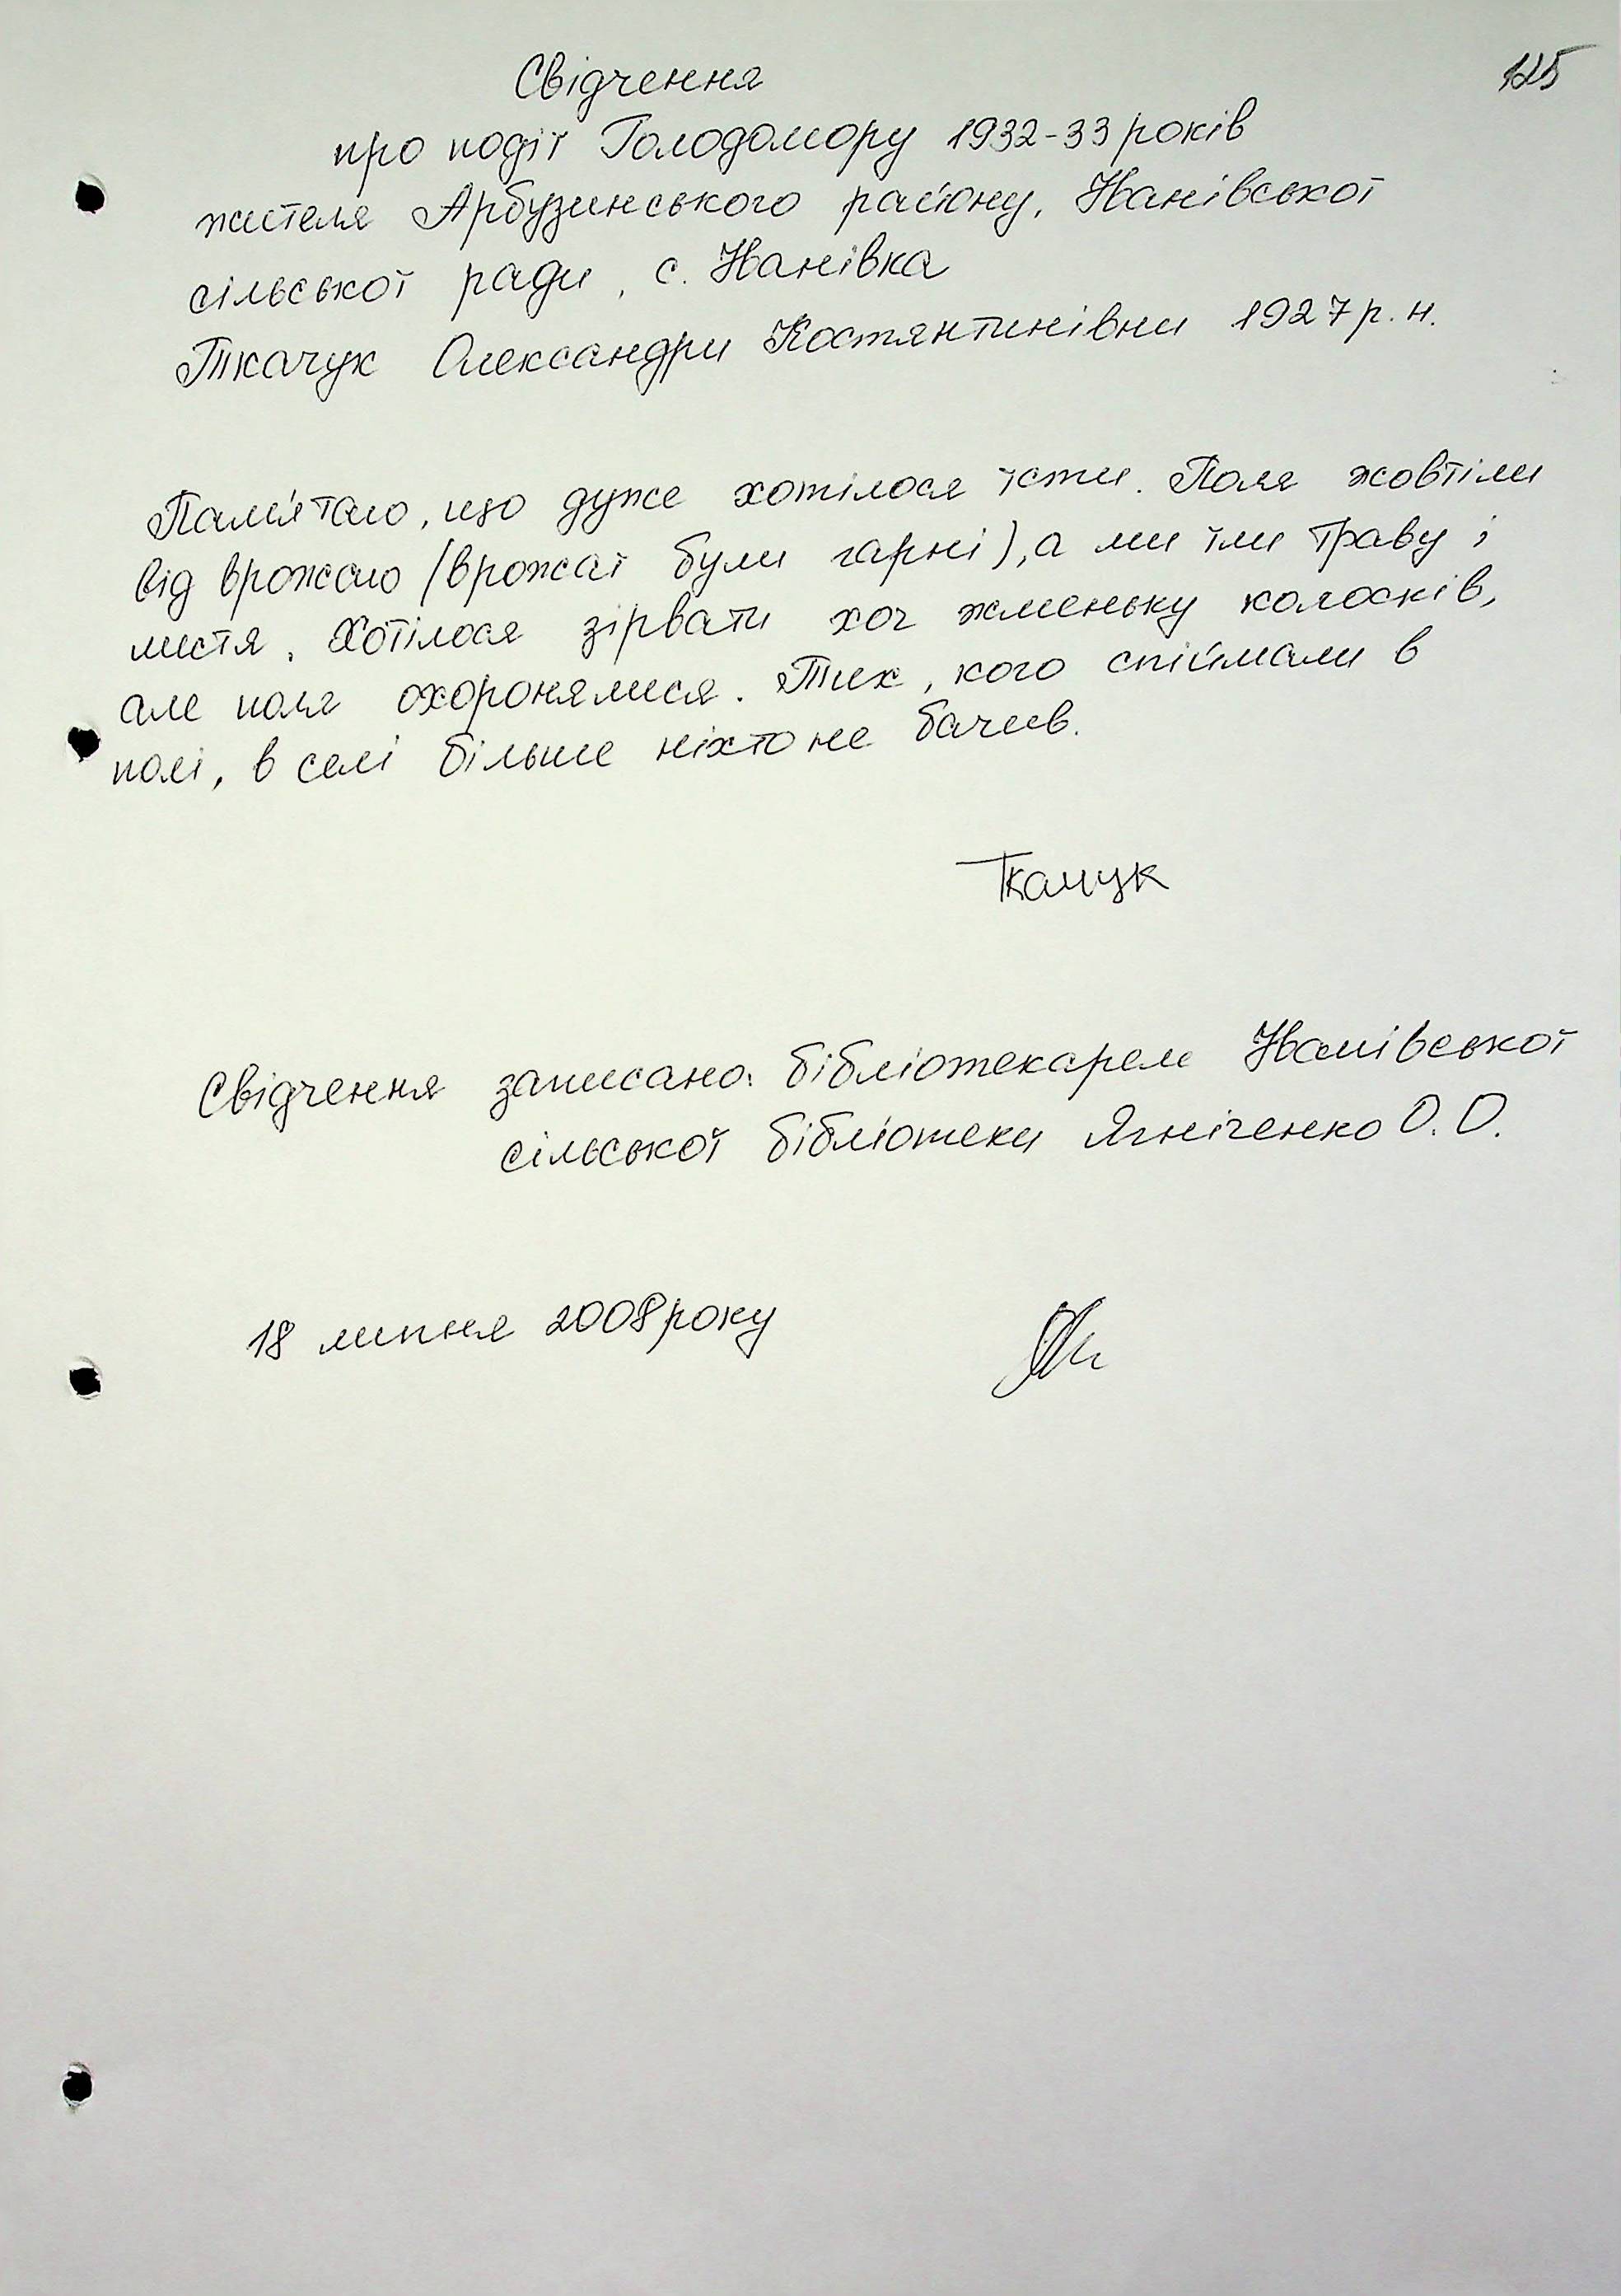 125
Свідчення
про події Голодомору 1932-33 років
жителя Арбузинського району, Іванівської
сільської ради, с. Іванівка
Ткачук Олександри Костянтинівни 1927 р. н.
Пам'ятаю, що дуже хотілося їсти. Поля жовтіли
від врожаю (врожаї були гарні), а ми їли траву і
листя. Хотілося зірвати хоч жменьку колосків,
але поля охоронялися. Тих, кого спіймали в
полі, в селі більше ніхто не бачив.
Ткачук
Свідчення записано: бібліотекарем Іванівської
сільської бібліотеки Ягніченко О. О.
18 липня 2008 року